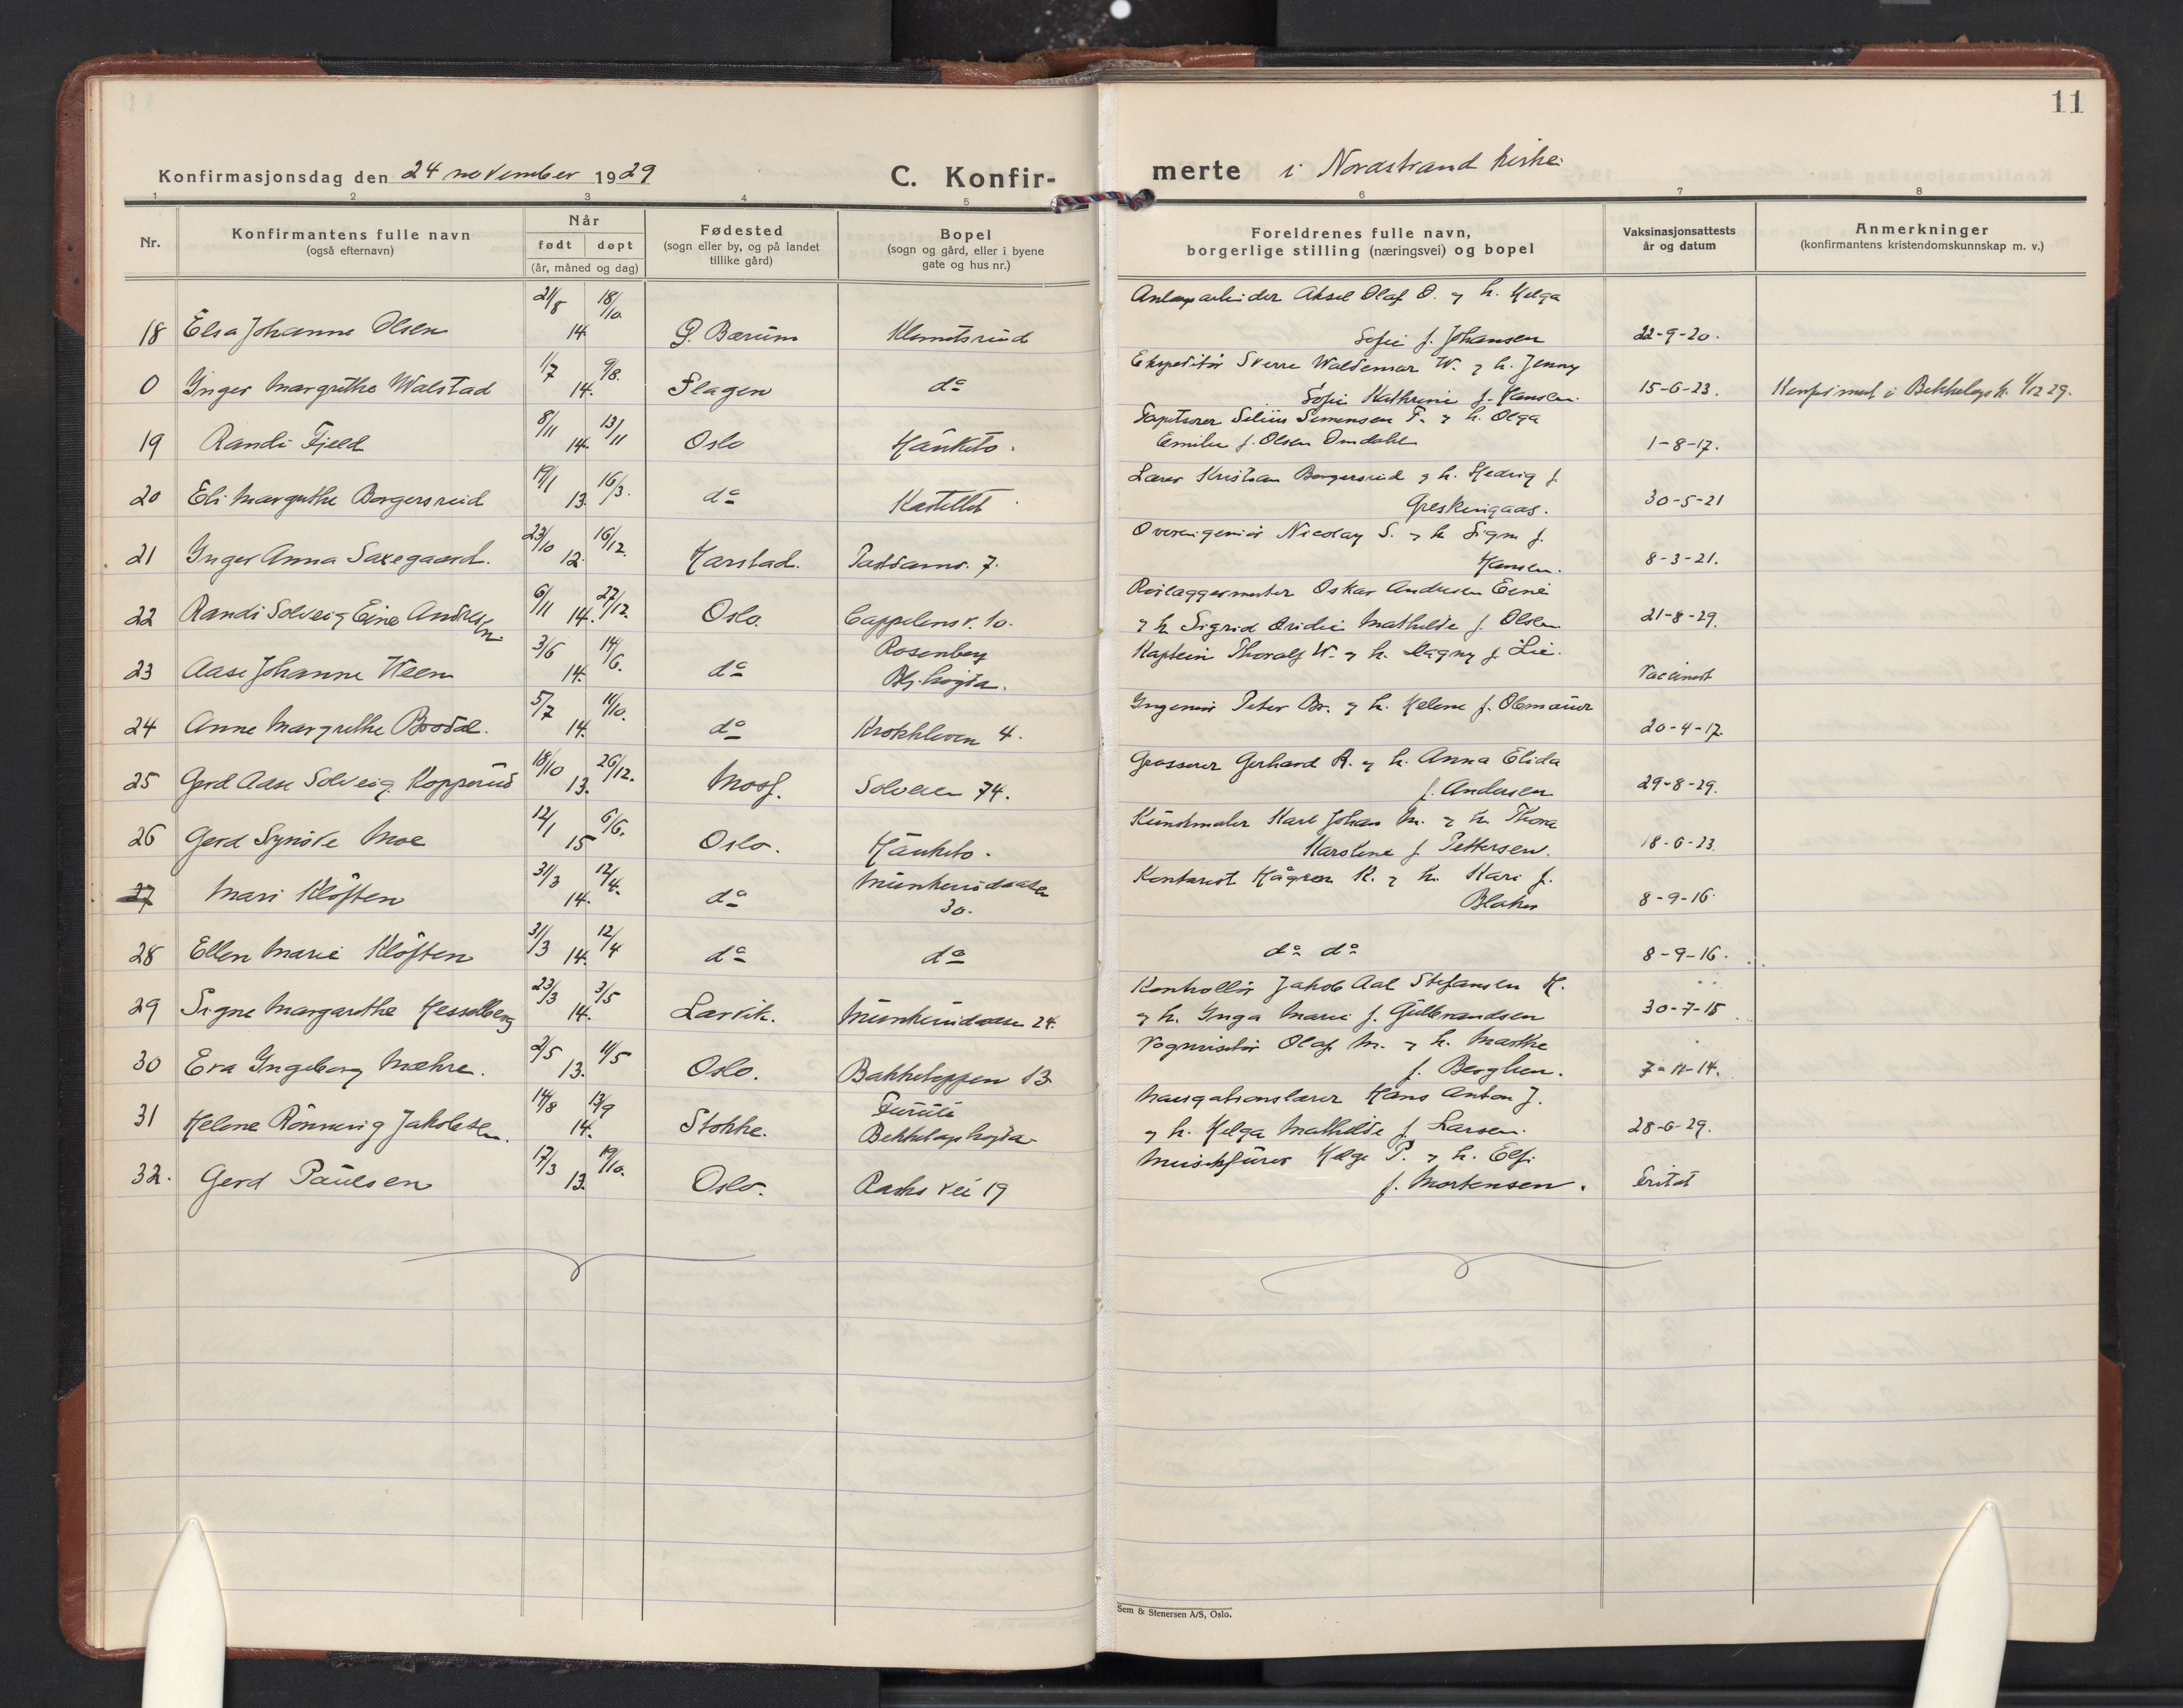 11
Konfirmasjonsdag den 24 november 1929 C. Konfir-
merte i Nordstrand kirke
1 2 3 4 5 6 7 8
Nr.
Konfirmantens fulle navn
(også efternavn)
Når
født døpt
(år, måned og dag)
Fødested
(sogn eller by, og på landet
tillike gård)
Bopel
(sogn og gård, eller i byene
gate og hus nr.)
Foreldrenes fulle navn,
borgerlige stilling (næringsvei) og bopel
Vaksinasjonsattests
år og datum
Anmerkninger
(konfirmantens kristendomskunnskap m. v.)
18 Elsa Johanne Olsen 21/8 14. 18/10. Ø. Bærum Klemetsrud Aksel Olaf O. og h. Helga
Sofie f. Johansen 22-9-20.
0 Inger Margrethe Walstad 1/7 14. 9/8. Slagen do Ekspeditør Sverre Waldemar W. og h. Jenny
Sofie Kathrine f. Hansen. 15-6-23. Konfirmert i Bekkelags k. 1/12 29.
19 Randi Fjeld 8/11 14. 13/11 Oslo Hauketo. Tapetserer Simensen F. og h. Olga
Emilie f. Olsen Omdahl 1-8-17.
20 Eli Margrethe Borgersrud 19/1 13. 16/3. do Kastellet Lærer Kristian Borgersrud og h. Hedvig f.
30-5-21
21 Inger Anna Saxegaard. 23/10 12. 16/12. Harstad. 7. Overingeniør Nicolay S. og h. Signe f.
Hansen. 8-3-21.
22 Randi Solveig Eine Andresen 6/11 14. 27/12. Oslo. Cappelens v. 10. Rørlæggermester Oskar Andresen Eine
og h. Sigrid Mathilde f. Olsen 21-8-29.
23 Aase Johanne Ween 3/6 14. 14/6. do Rosenberg
Bk. høgda. Kaptein Thoralf W. og h. Dagny f. Lie. Vaccinert
24 Anne Margrethe Brodal. 5/7 14. 11/10. do Krokkleven 4. Ingeniør Peter Br. og h. Helene f.
20-4-17.
25 Gerd Aase Solveig Kopperud 18/10 13. 26/12. Moss. Solveien 74. Grosserer Gerhard K. og h. Anna Elida
f. Andersen 29-8-29.
26 Gerd Synøve Moe 12/1 15 6/6. Oslo. Hauketo. Kunstmaler Karl Johan M. og h. Thora
Karoline f. Pettersen. 18-6-23.
27 Mari Kløften 31/3 14. 12/4. do Munkerudveien
30. Kontorist Håkon K. og h. Kari f.
Blaker 8-9-16.
28 Ellen Marie Kløften 31/3 14. 12/4 do do do do 8-9-16.
29 Signe Margarethe Hesselberg 23/3 14. 3/5 Larvik. Munkerudveien 24. Kontrollør Jakob Aal Stefansen H.
og h. Inga Marie f. Gulbrandsen 30-7-15
30 Eva Ingeborg Mæhre. 2/5 13. 11/5 Oslo. Bakketoppen 13 Vognvisitør Olaf M. og h. Marthe
f. Berglien. 7-11-14.
31 Helene Rønnevig Jakobsen. 14/8 14. 13/9 Stokke. Furuli
Bekkelagshøgda Navigationslærer Hans Anton J.
og h. Helga Mathilde f. Larsen. 28-6-29.
32. Gerd Paulsen 17/3 13. 19/10. Oslo. Rasks vei 19 Helge P. og h. Elfi
f. Mortensen. Fritat
Sem & Stenersen A/S, Oslo.